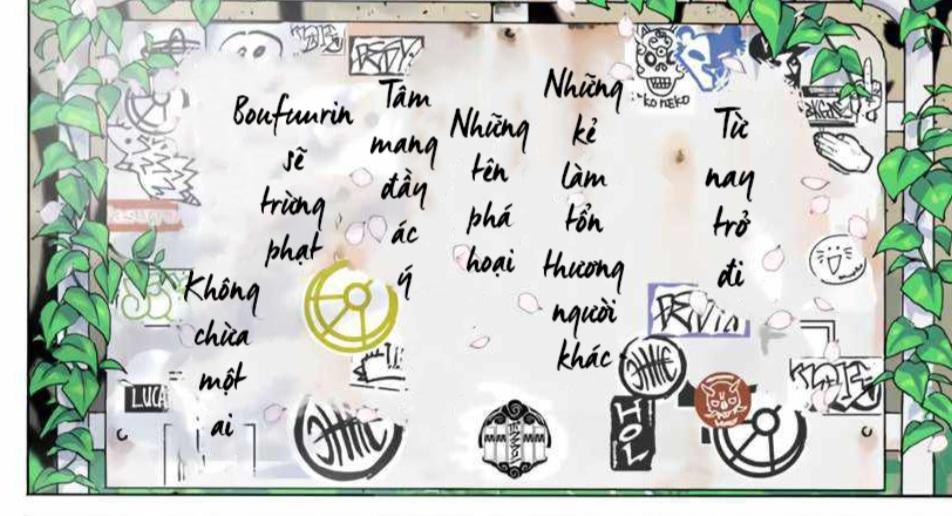 Từ nay trở đi
Những kẻ làm tổn thương người khác
Những tên phá hoại
Tâm mang đầy ác ý
Boufuurin sẽ trừng phạt
Không chừa một ai
KONEKO
LUCA
HOL